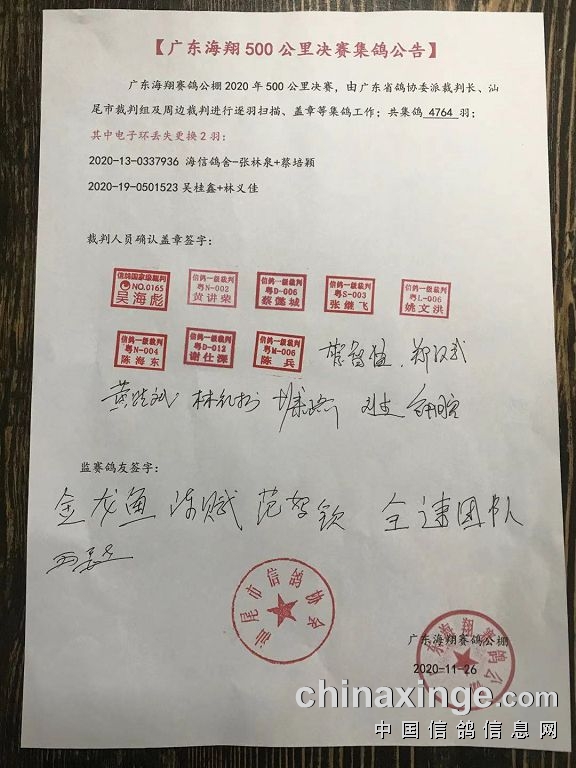 【广东海翔500公里决赛集鸽公告】
广东海翔赛鸽公棚2020年500公里决赛，由广东省鸽协委派裁判长、汕
尾市裁判组及周边裁判进行逐羽扫描、盖章等集鸽工作；共集鸽 4764 羽；
其中电子环丢失更换2羽：
2020-13-0337936 海信鸽舍-张林泉+蔡培颖
2020-19-0501523 吴桂鑫+林义佳
裁判人员确认盖章签字：
信鸽国家级裁判 NO.0165 吴海彪
信鸽一级裁判 粤N-002 黄讲荣
信鸽一级裁判 粤D-006 蔡懿城
信鸽一级裁判 粤S-003 张继飞
信鸽一级裁判 粤L-006 姚文洪
信鸽一级裁判 粤N-004 陈海东
信鸽一级裁判 粤D-012
信鸽一级裁判 粤M-006 陈兵
监赛鸽友签字：
金龙鱼 全速团队
汕尾市信鸽协会
广东海翔赛鸽公棚
2020-11-26
chinaxinge.com
中国信鸽信息网